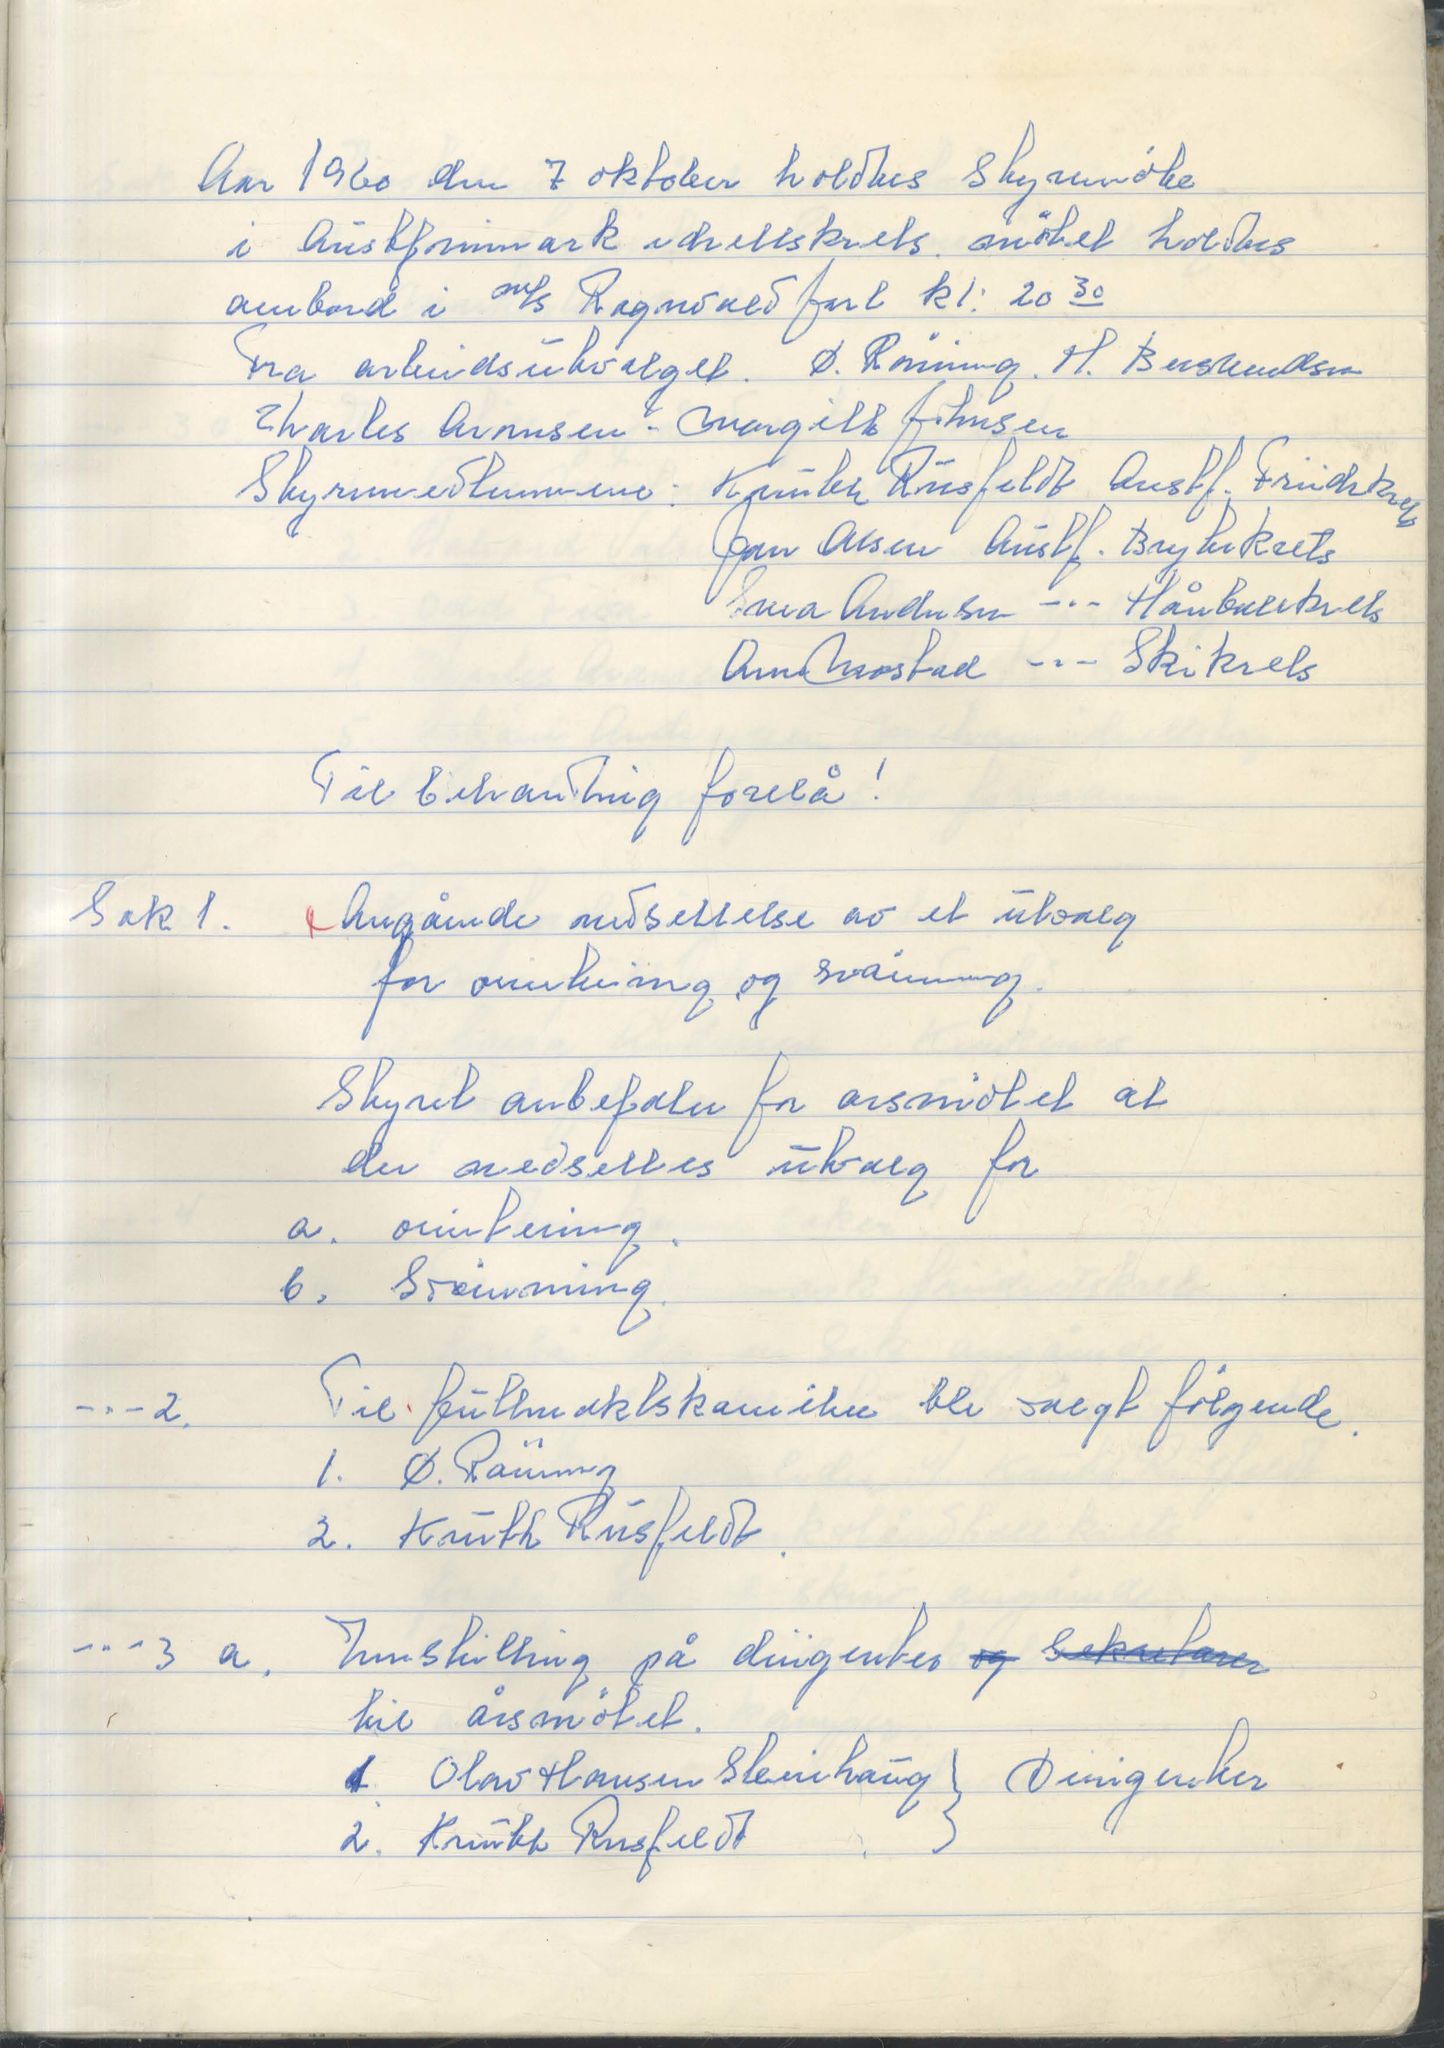 Aar 1960 den 7 oktober holdtes Styremöte
i Austfinnmark idrettskrets. mötet holdtes
ombord i m/s Ragnvald Jarl kl: 20 30
Fra arbeidsutvalget. Ø. Röning. H.
Charles Aronsen - Margitt Johnsen
Styremedlemmene: Knuth Rusfeldt Austf. Friidrkrets
Jan Olsen Austf. Brytekrets
Svea Andersen -"- Håndballkrets
Arne Mostad -"- Skikrets
Til behandling forelå!
Sak 1. Angående nedsettelse av et utvalg
for orientering og svömming.
Styret anbefaler for årsmötet at
der nedsettes utvalg for
a. orientering.
b. Svömming.
-"- 2. Til fullmaktskomitee ble valgt fölgende.
1. Ø. Röning
2. Knuth Rusfeldt.
-"- 3 a. Innstilling på dirigenter og Sekretærer
til årsmötet.
1. Olav Hansen Steinhaug } Dirigenter
2. Knuth Rusfeldt